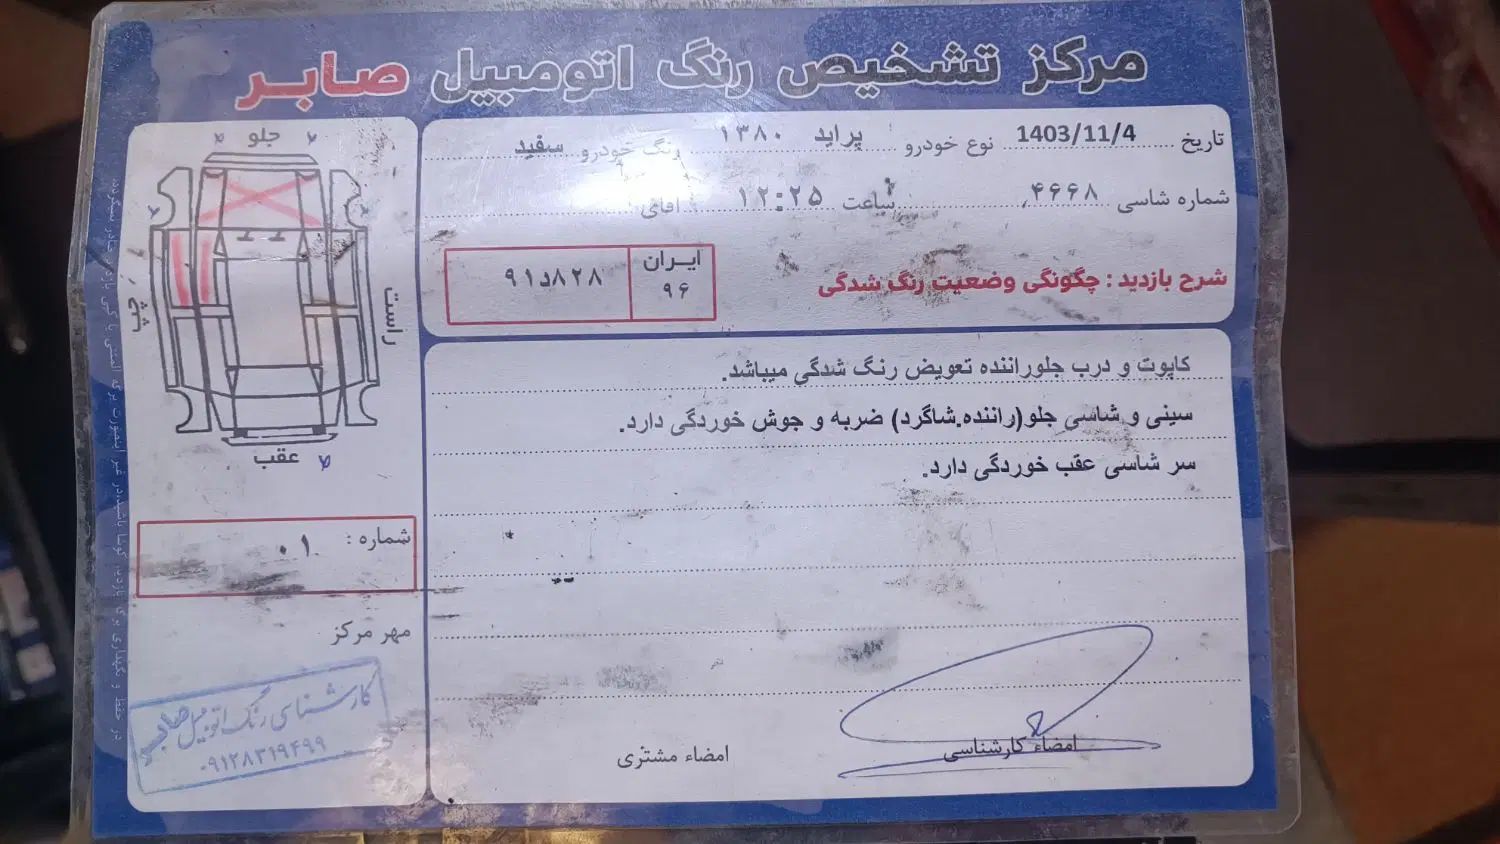 مرکز تشخیص رنگ اتومبیل صابر
تاریخ 1403/11/4 نوع خودرو پراید ۱۳۸۰ رنگ خودرو سفید
شماره شاسی ۴۶۶۸ ساعت ۱۲:۲۵ آقای
شرح بازدید : چگونگی وضعیت رنگ شدگی
ایـران
۹۶
۹۱د۸۲۸
کاپوت و درب جلوراننده تعویض رنگ شدگی میباشد.
سینی و شاسی جلو(راننده.شاگرد) ضربه و جوش خوردگی دارد.
سر شاسی عقب خوردگی دارد.
جلو
راست
عقب
شماره : ۰۱
مهر مرکز
کارشناسی رنگ اتومبیل صابر
۰۹۱۲۸۳۱۹۴۹۹
امضاء کارشناسی
امضاء مشتری